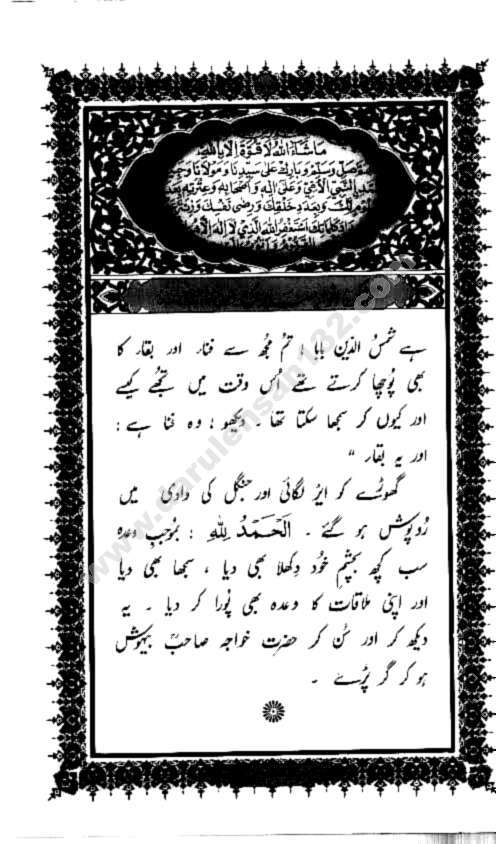 مَا شَاءَ اللهُ لَا قُوَّةَ اِلَّا بِاللهِ
وَصَلِّ وَسَلِّمْ وَبَارِكْ عَلٰى سَيِّدِنَا وَمَوْلَانَا
النَّبِيِّ الْاُمِّيِّ وَعَلٰى اٰلِهٖ وَاَصْحَابِهٖ وَعِتْرَتِهٖ
وَبِعَدَدِ خَلْقِكَ وَرِضٰى نَفْسِكَ وَزِنَةِ
اَسْتَغْفِرُ اللهَ الَّذِيْ لَا اِلٰهَ اِلَّا
ہے شمسُ الدّین بابا ! تمُ مجُھ سے فنار اور بقار کا
بھی پُوچھا کرتے تھے اُس وقت میں تجھُے کیسے
اور کیوں کر سمجھا سکتا تھا ۔ دیکھو ! وہ فنا ہے :
اور یہ بقار "
گھوڑے کو ایڑ لگائی اور جنگل کی وادی میں
رُوپوش ہو گئے ۔ اَلْحَمْدُ لِلّٰہِ : بمُوجبِ وعدہ
سب کچھ بچشمِ خوُد دِکھلا بھی دیا ، سمجھا بھی دیا
اور اپنی ملاقات کا وعدہ بھی پُورا کر دیا ۔ یہ
دیکھ کر اور سُن کر حضرت خواجہ صاحبؒ بیہوش
ہو کر گر پڑے ۔
www.darulehsan182.com